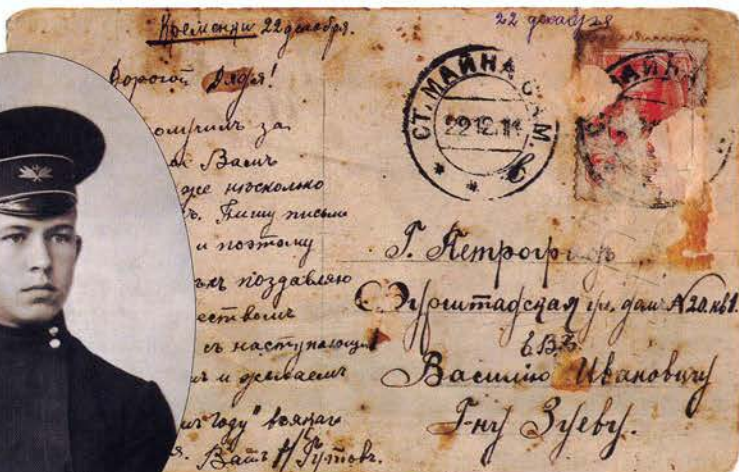 Кременки 22 декабря.
22 декабря
Дорогой Дядя!
за
Вамъ
же нѣсколько
Пишу письмо
и поэтому
поздравляю
ествомъ
съ наступающ
и желаемъ
году" всякаго
Вашъ Н Гутовъ.
СТ. МАЙНА СИМ.
22 12 14
МАЙНА
Г. Петроградъ
Фурштадская ул. домъ № 20. кв 1.
Е.В.Б.
Василию Ивановичу
Г-ну Зуеву.